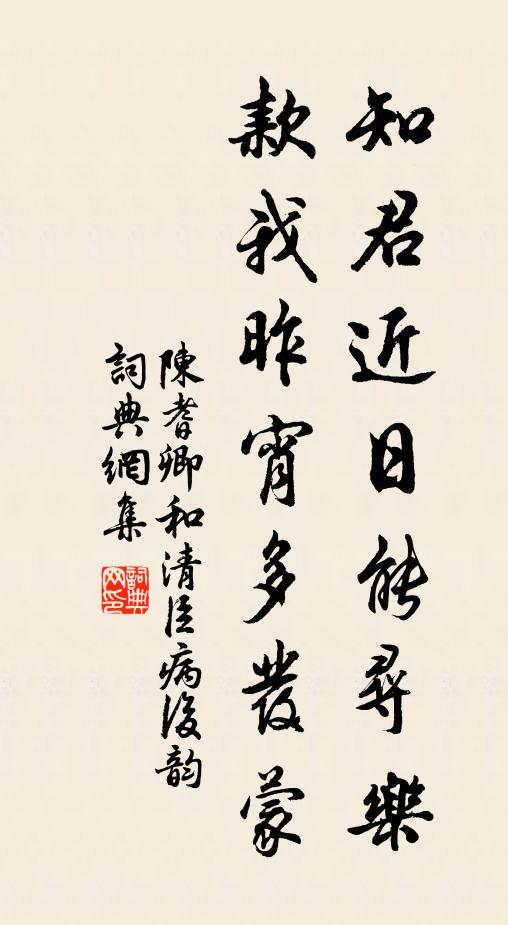 知君近日能尋樂
款我昨宵多發蒙
陳耆卿和清臣病後韵
詞典網集
詞典網印